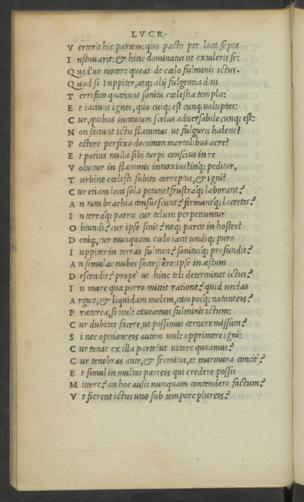 LVCR.
V erterit hic partim: quo pacto per loca septa
I nsinuarit: & hinc dominatus ut extulerit se:
Q uid'ue nocere queat de cœlo fulminis ictus.
Q uod si Iuppiter, atq; alii fulgentia diui
T errifico quatiunt sonitu cœlestia templa:
E t iaciunt ignes, quo cuiq; est cunq; uoluptas:
C ur, quibus incautum scelus aduersabile cunq; est:
N on faciunt ictu flammas ut fulguris halent?
P ectore perfixo documen mortalibus acre?
E t potius nulla sibi turpi conscius in re
V oluitur in flammis innoxius inq; peditur,
T urbine cœlesti subito correptus, & igni?
C ur etiam loca sola petunt? frustraq; laborant?
A n tum brachia consuescunt? firmantq; lacertos?
I n terraq; patris cur telum perpetiuntur
O btundi? cur ipse sinit? neq; parcit in hostes?
D eniq; cur nunquam cœlo iacit undiq; puro
I uppiter in terras fulmen? sonitusq; profundit?
A n simulac nubes successere, ipse in æstum
D escendit? prope ut hinc teli determinet ictus?
I n mare qua porro mittit ratione? quid undas
A rguit, & liquidam molem, camposq; natanteis?
P ræterea, si uult caueamus fulminis ictum:
C ur dubitat facere, ut possimus cernere missum?
S i nec opinanteis autem uult opprimere igni:
C ur tonat ex illa parte? ut uitere queamus?
C ur tenebras ante, & fremitus, et murmura concit?
E t simul in multas parteis qui credere possis
M ittere? an hoc ausis nunquam contendere factum?
V t fierent ictus uno sub tempore plures?